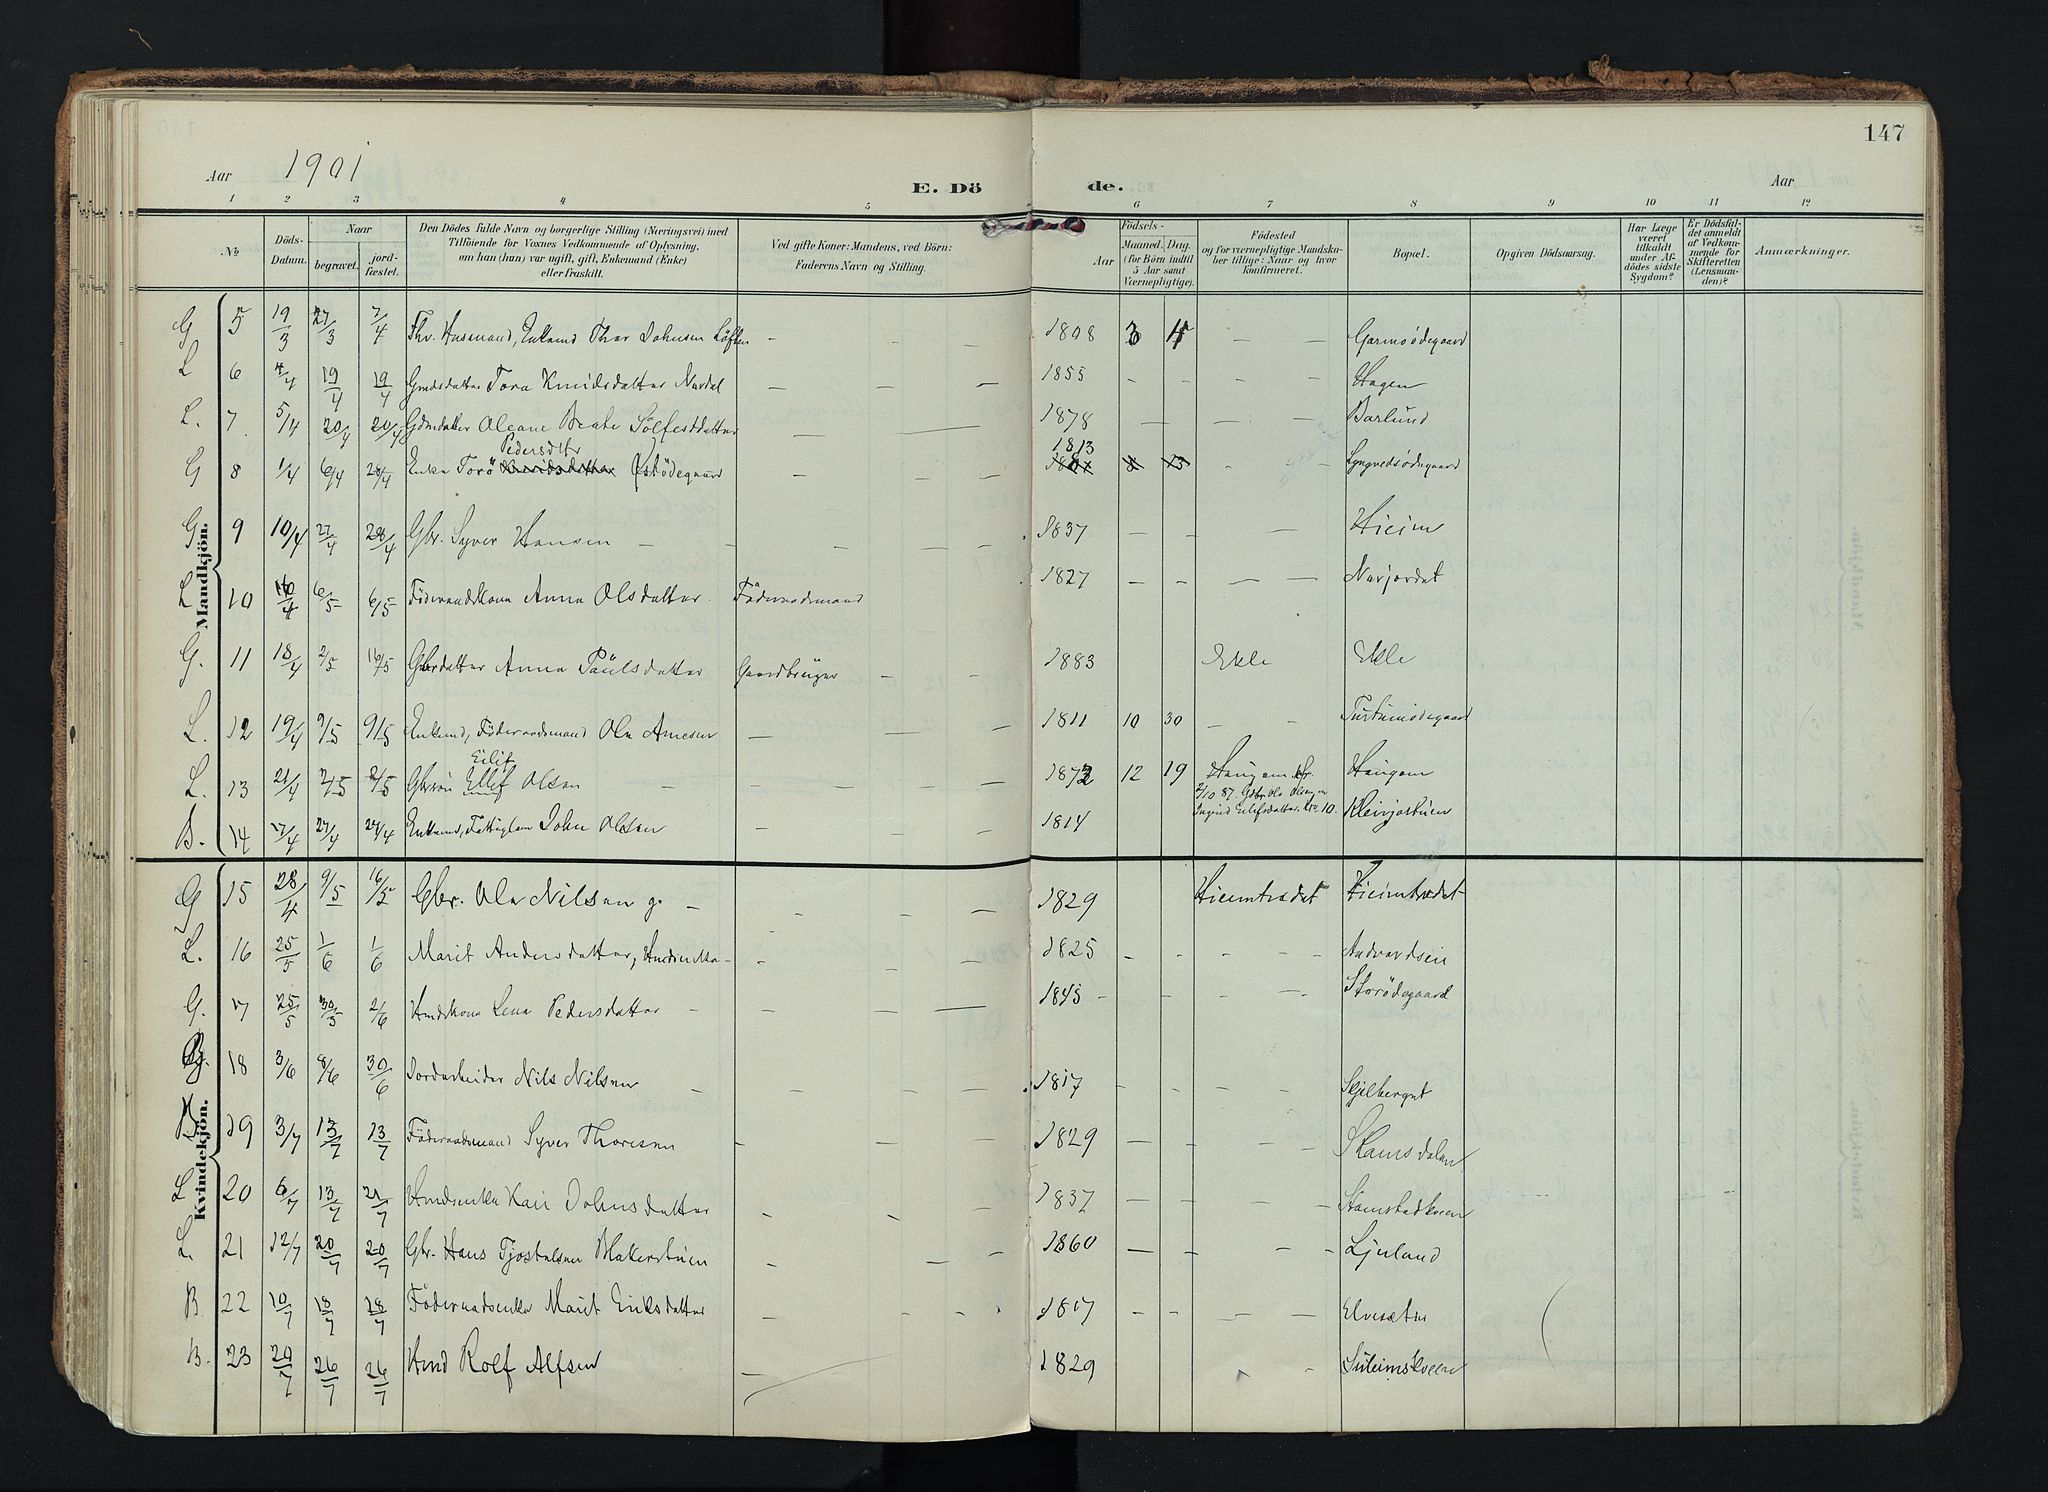 147
Aar 1901
E. Dö de.
Aar
1 2 3 4 5 6 7 8 9 10 11 12
No.
Döds-Datum.
Naar
begravet. jordfæstet.
Den Dödes fulde Navn og borgerlige Stilling (Næringsvei) med
Tilföiende for Voxnes Vedkommende af Oplysning,
om han (hun) var ugift, gift, Enkemand (Enke)
eller fraskilt.
Ved gifte Koner: Mandens, ved Börn:
Faderens Navn og Stilling.
Födsels-
Aar
Maaned. Dag.
(for Börn indtil
5 Aar samt
Værnepligtige).
Födested
og for værnepligtige Mandska-
ber tillige: Naar og hvor
konfirmeret.
Bopæl.
Opgiven Dödsaarsag.
Har Læge
været
tilkaldt
under Af-
dödes sidste
Sygdom?
Er Dödsfal-
det anmeldt
af Vedkom-
mende for
Skifteretten
(Lensman-
den)?
Anmærkninger.
Mandkjön.
Kvindekjön.
G 5 19/3 27/3 7/4 Fhv. Husmand, Enkemd Thor Johnsen Löften – – – 1808 3 – – Garmoödegaard
L 6 4/4 19/4 19/4 Tora Knudsdatter Nordal – – – 1855 – – – – Hagen
L. 7. 5/4 20/4 20/4 Oleane Beate – – 1878 – – – – Barlund
G 8 1/4 6/4 28/4 Enke Torö Knudsdatter Pedersdtr Östödegaard – – – 1813 8 13 – – Lyngvedsödegaard
G 9 10/4 27/4 28/4 Gbr. Syver Hansen – – – – – 1837 – – – Hieim
L 10 16/4 6/5 6/5 Föderaadskone Anna Olsdatter. Föderaadsmand 1827 – – – – Norjordet
G. 11 18/4 2/5 16/5 Gbrdatter Anna Paulsdatter Gaardbruger – – 1883 Ekle Ekle
L. 12 19/4 9/5 9/5 Enkemd, Föderaadsmand Ola Arnesen – – – 1811 10 30 – –
L. 13 21/4 2/5 2/5 Gbrsön Ellif Eilif Olsen – – – – 1872 12 19 Haugom
2/10 87. Gbr Ola Olsen
Ingrid Eilifsdatter. Haugom
B. 14 17/4 27/4 27/4 Enkemd, Fattiglem John Olsen – – – 1814 Kleivjostuen
G 15 28/4 9/5 16/5 Gbr. Ola Nilsen g. – – – – 1829 Hieimtrædet Hieimtrædet
L. 16 25/5 1/6 1/6 Marit Andersdatter, – – – 1825 – – – –
G. 17 25/5 30/5 2/6 Hmdskone Lena Pedersdatter – – – – 1845 – – – Storödegaard
G. 18 3/6 8/6 30/6 Jordarbeider Nils Nilsen – – – 1817 – – – – Skjelberget
19 3/7 13/7 13/7 Föderaadsmand Syver Thoresen – – – 1829 – – – Stamsdalen
L 20 6/7 13/7 21/7 Hmdsenke Kari Johnsdatter – – – 1837 – – – –
L. 21 12/7 20/7 20/7 Gbr. Hans Tjostulsen – – – 1860 – – – – Ljuland
B 22 10/7 18/7 18/7 Föderaadsenke Marit Eriksdatter – – – 1817 – – – – Elvesæter
B. 23 20/7 26/7 26/7 Hmd Rolf Alfsen – 1829 – –